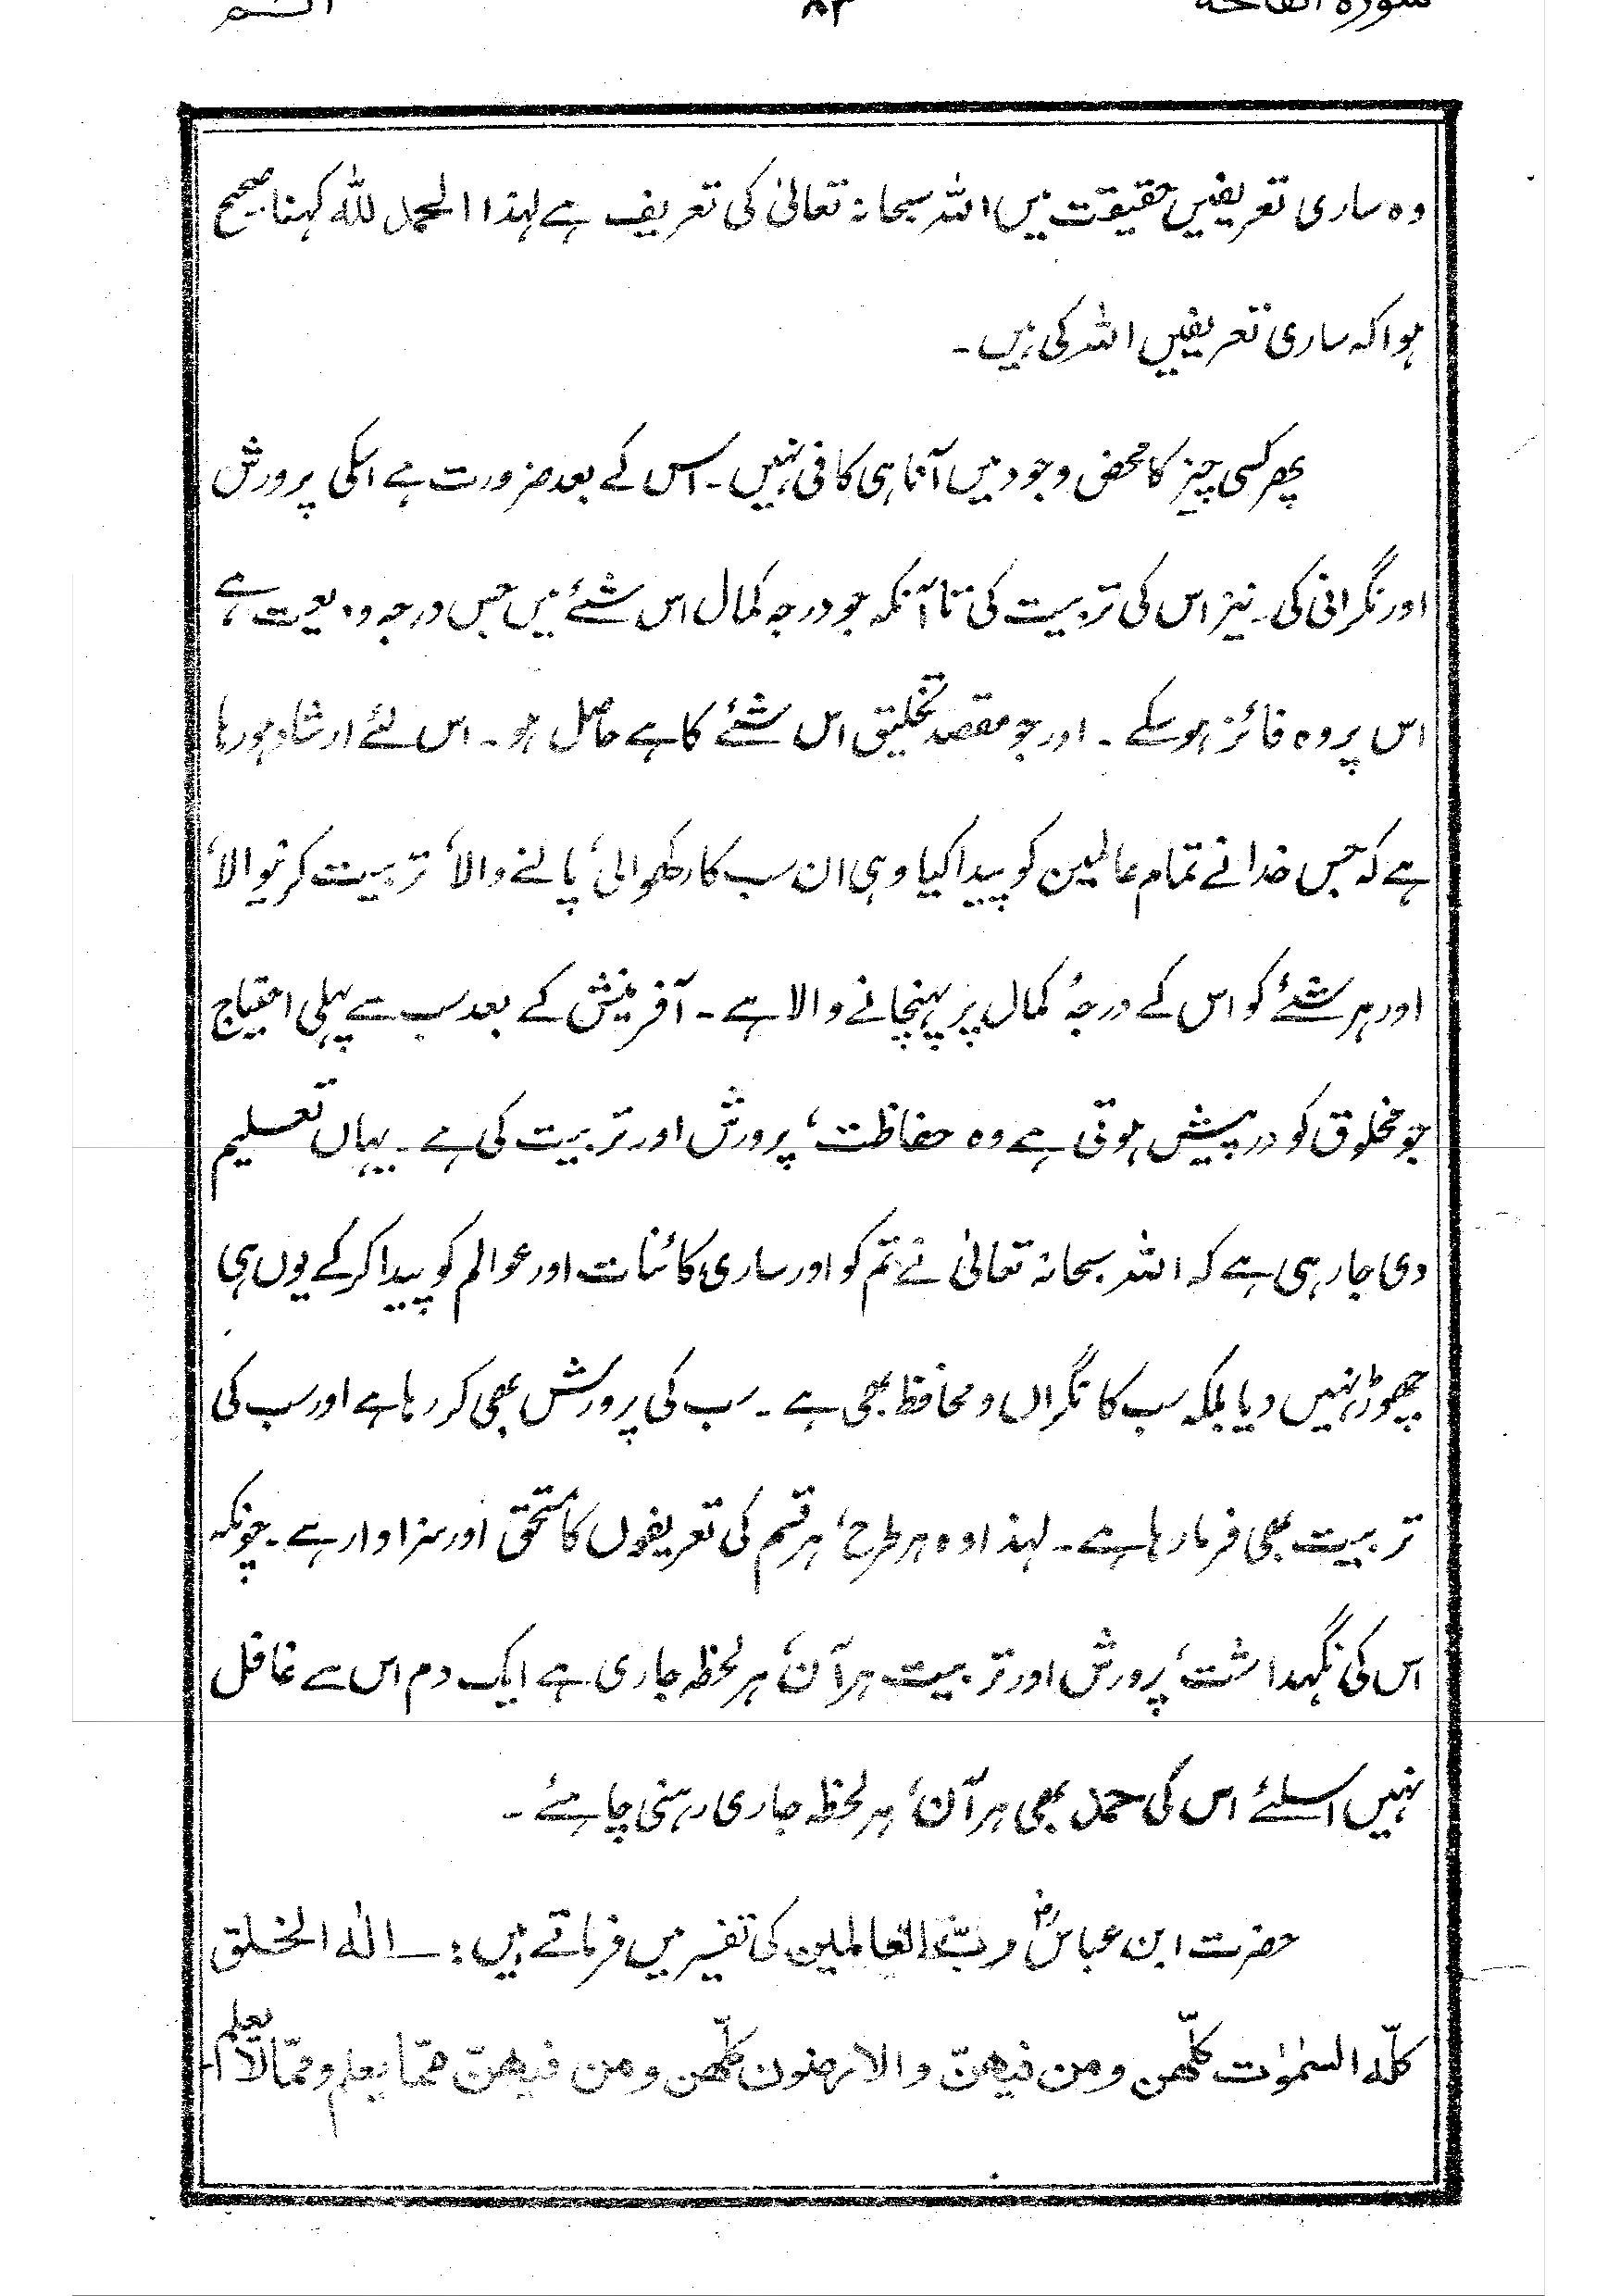 سورۃ الفاتحہ ۸۲ الٓـــم
وہ ساری تعریفیں حقیقت میں اللہ سبحانہ تعالیٰ کی تعریف ہے لہذا الحمد للہ کہنا صحیح
ہوا کہ ساری تعریفیں اللہ کی ہیں۔
پھر کسی چیز کا محض وجود میں آنا ہی کافی نہیں۔ اس کے بعد ضرورت ہے اسکی پرورش
اور نگرانی کی۔ نیز اس کی تربیت کی تا آنکہ جو درجہ کمال اس شئے میں جس درجہ ودیعت ہے
اس پر وہ فائز ہوسکے۔ اور جو مقصد تخلیق اس شئے کا ہے حاصل ہو۔ اس لئے ارشاد ہورہا
ہے کہ جس خدا نے تمام عالمین کو پیدا کیا وہی ان سب کا رکھوالی، پالنے والا، تربیت کرنیوالا،
اور ہر شئے کو اس کے درجۂ کمال پر پہنچانے والا ہے۔ آفرینش کے بعد سب سے پہلی احتیاج
جو مخلوق کو درپیش ہوتی ہے وہ حفاظت، پرورش اور تربیت کی ہے۔ یہاں تعلیم
دی جارہی ہے کہ اللہ سبحانہ تعالیٰ نے تم کو اور ساری کائنات اور عوالم کو پیدا کرکے یوں ہی
چھوڑ نہیں دیا بلکہ سب کا نگراں و محافظ بھی ہے۔ سب کی پرورش بھی کر رہا ہے اور سب کی
تربیت بھی فرمارہا ہے۔ لہذا وہ ہر طرح، ہر قسم کی تعریفوں کا مستحق اور سزاوار ہے۔ چونکہ
اس کی نگہداشت، پرورش اور تربیت ہر آن، ہر لحظہ جاری ہے ایک دم اس سے غافل
نہیں اسلئے اس کی حمد بھی ہر آن، ہر لحظہ جاری رہنی چاہئے۔
حضرت ابن عباسؓ ربّ العالمین کی تفسیر میں فرماتے ہیں :۔ الٰہ الخلق
کلّہ السمٰوٰت کلّھن و من فیھنّ والارضون کلّھن و من فیھنّ ممّا یعلم و ممّا لا یعلم